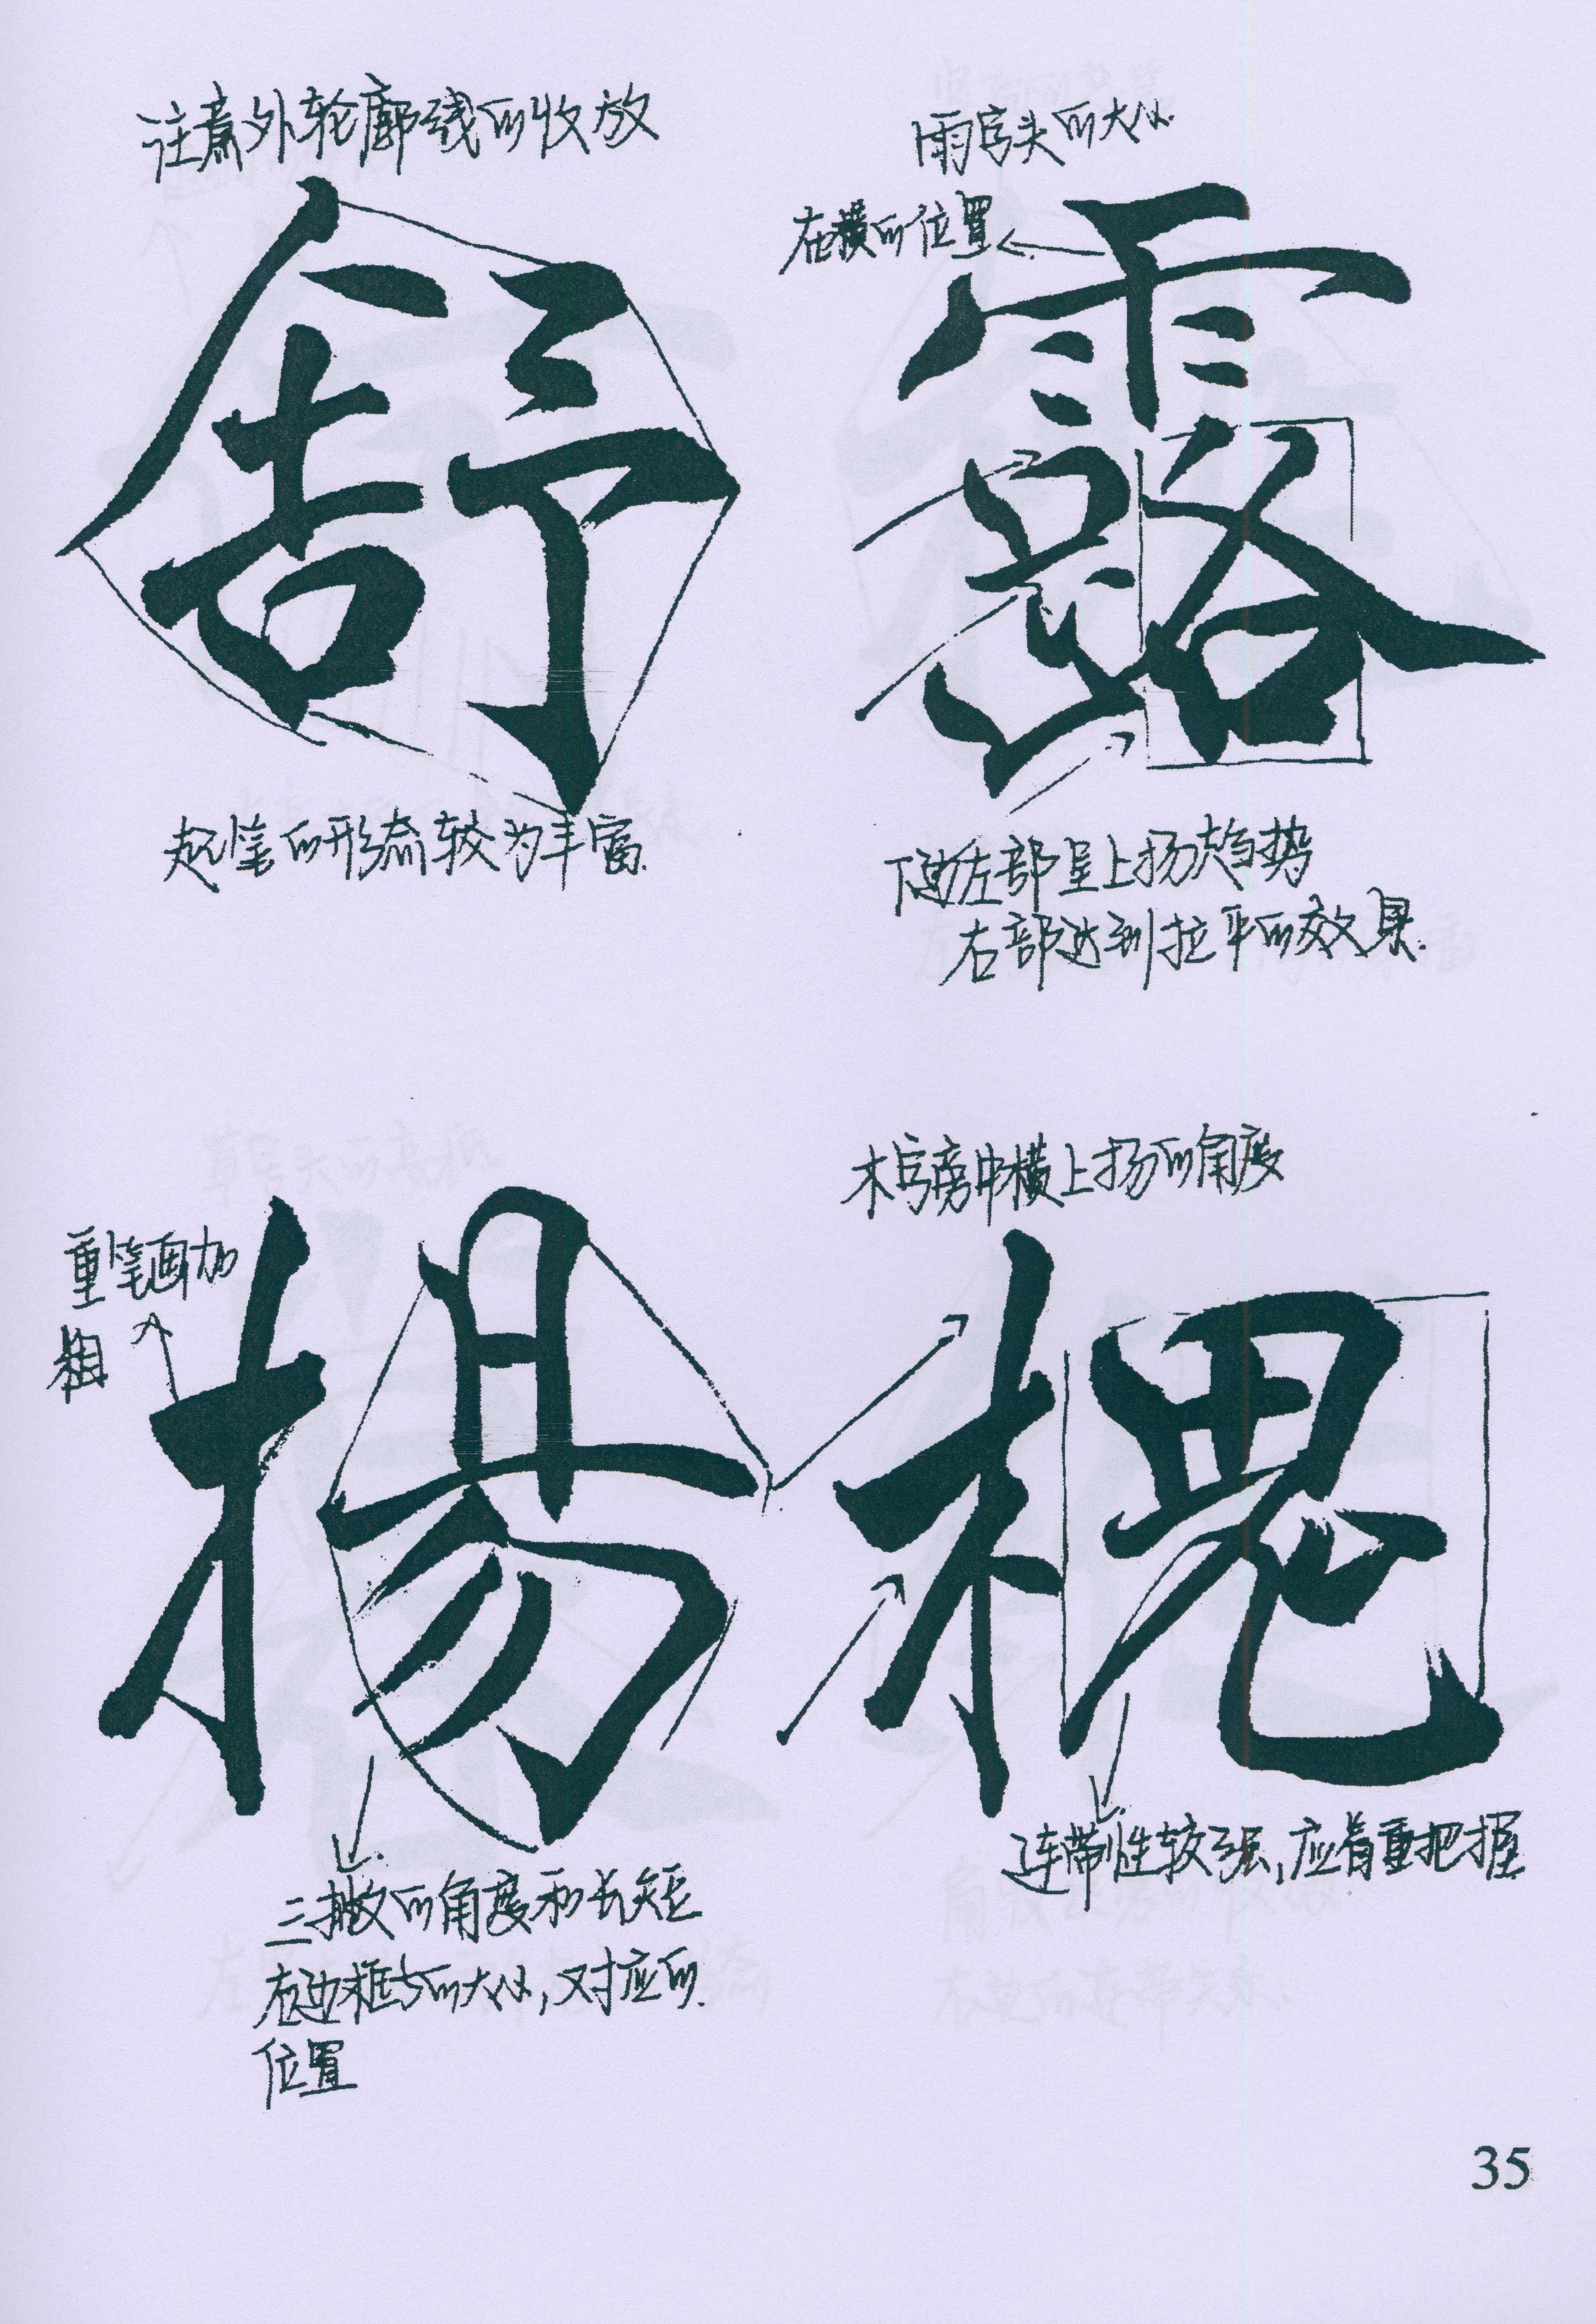 注意外轮廓线的收放
舒
起笔的形态较为丰富
雨字头的大小
左横的位置
露
下边左部呈上扬趋势
右部达到拉平的效果
重笔画加
粗
楊
三撇的角度和长短
右边框的大小,又对应的
位置
木字旁中横上扬的角度
槐
连带性较强,应着重把握
35